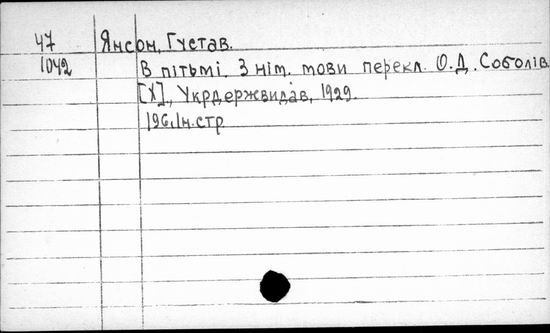 47 Янсон, Густав.
1042 В пітьмі. З нім. мови перекл. О.Д. Соболів.
[Х], Укрдержвидав, 1929.
196,1н.стр.